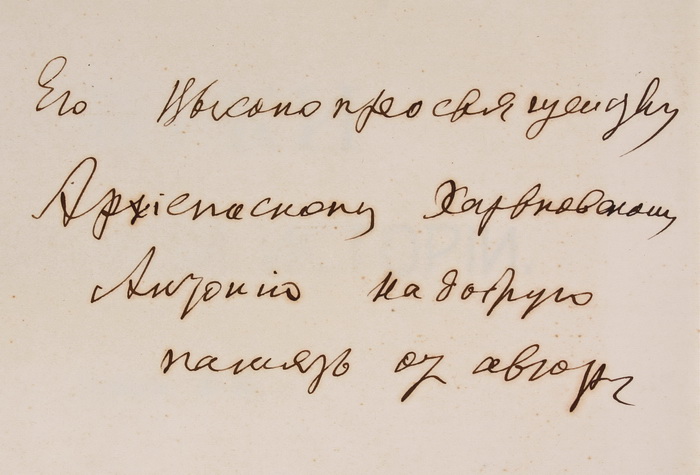 Его Высокопреосвященству
Архіепископу Харьковскому
Антонію на добрую
память от автора